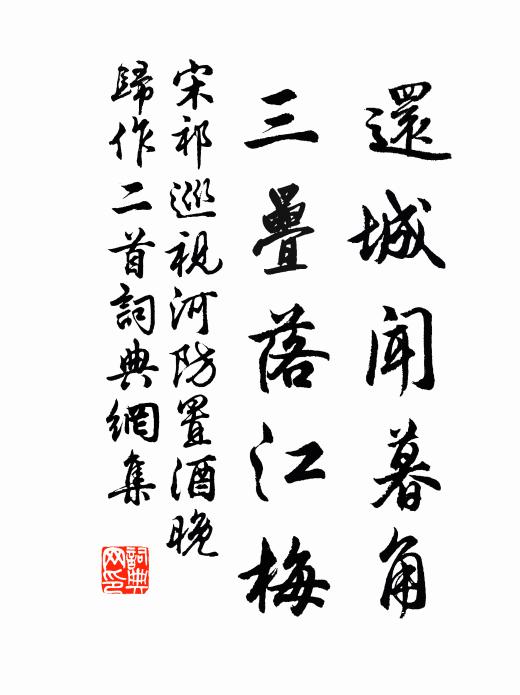 還城聞暮角
三疊落江梅
宋祁巡視河防置酒晚
歸作二首詞典網集
詞典
网印